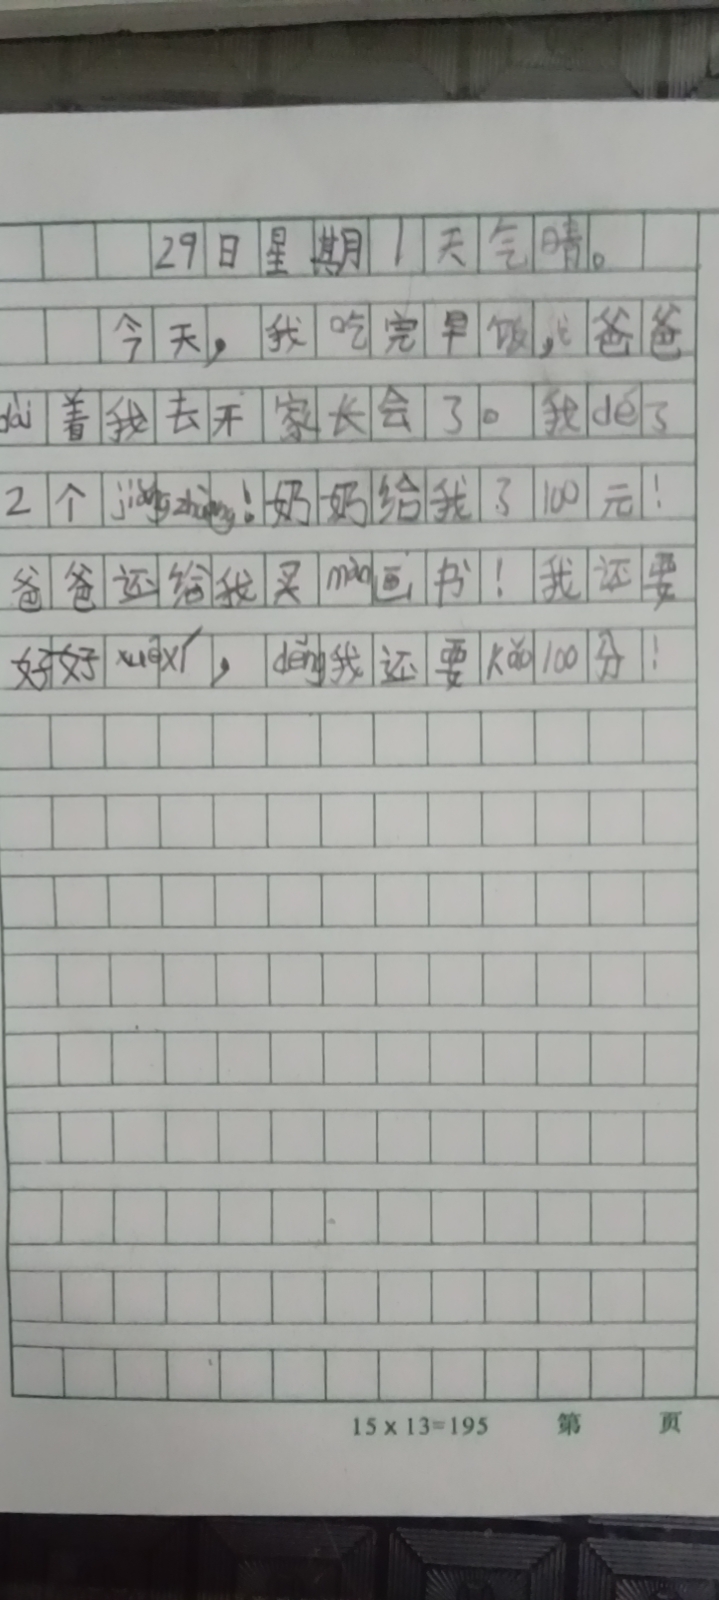 29日星期1天气晴。
今天，我吃完早饭，爸爸
dài着我去开家长会了。我dé了
2个jiǎngzhuàng！奶奶给我了100元！
爸爸还给我买màn画书！我还要
好好xuéxí，děng我还要kǎo100分！
15×13=195 第 页